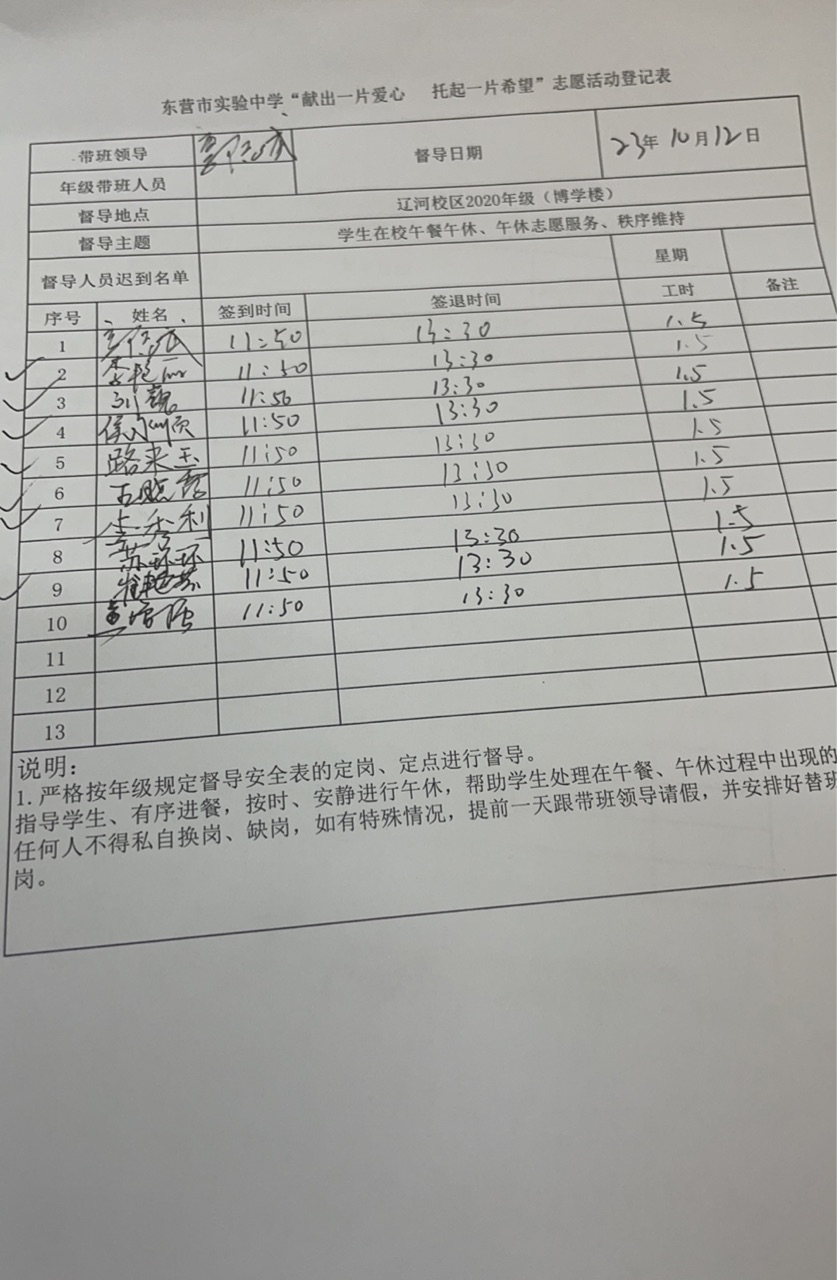 东营市实验中学“献出一片爱心 托起一片希望”志愿活动登记表
带班领导 督导日期 23年10月12日
年级带班人员
督导地点 辽河校区2020年级（博学楼）
督导主题 学生在校午餐午休、午休志愿服务、秩序维持
督导人员迟到名单 星期
序号 姓名 签到时间 签退时间 工时 备注
1 11:50 13:30 1.5
2 李艳丽 11:50 13:30 1.5
3 刘魏 11:50 13:30 1.5
4 11:50 13:30 1.5
5 路来玉 11:50 13:30 1.5
6 王晓霞 11:50 13:30 1.5
7 李秀利 11:50 13:30 1.5
8 苏环环 11:50 13:30 1.5
9 崔艳燕 11:50 13:30 1.5
10 11:50 13:30 1.5
11
12
13
说明：
1. 严格按年级规定督导安全表的定岗、定点进行督导。
指导学生、有序进餐，按时、安静进行午休，帮助学生处理在午餐、午休过程中出现的
任何人不得私自换岗、缺岗，如有特殊情况，提前一天跟带班领导请假，并安排好替班
岗。